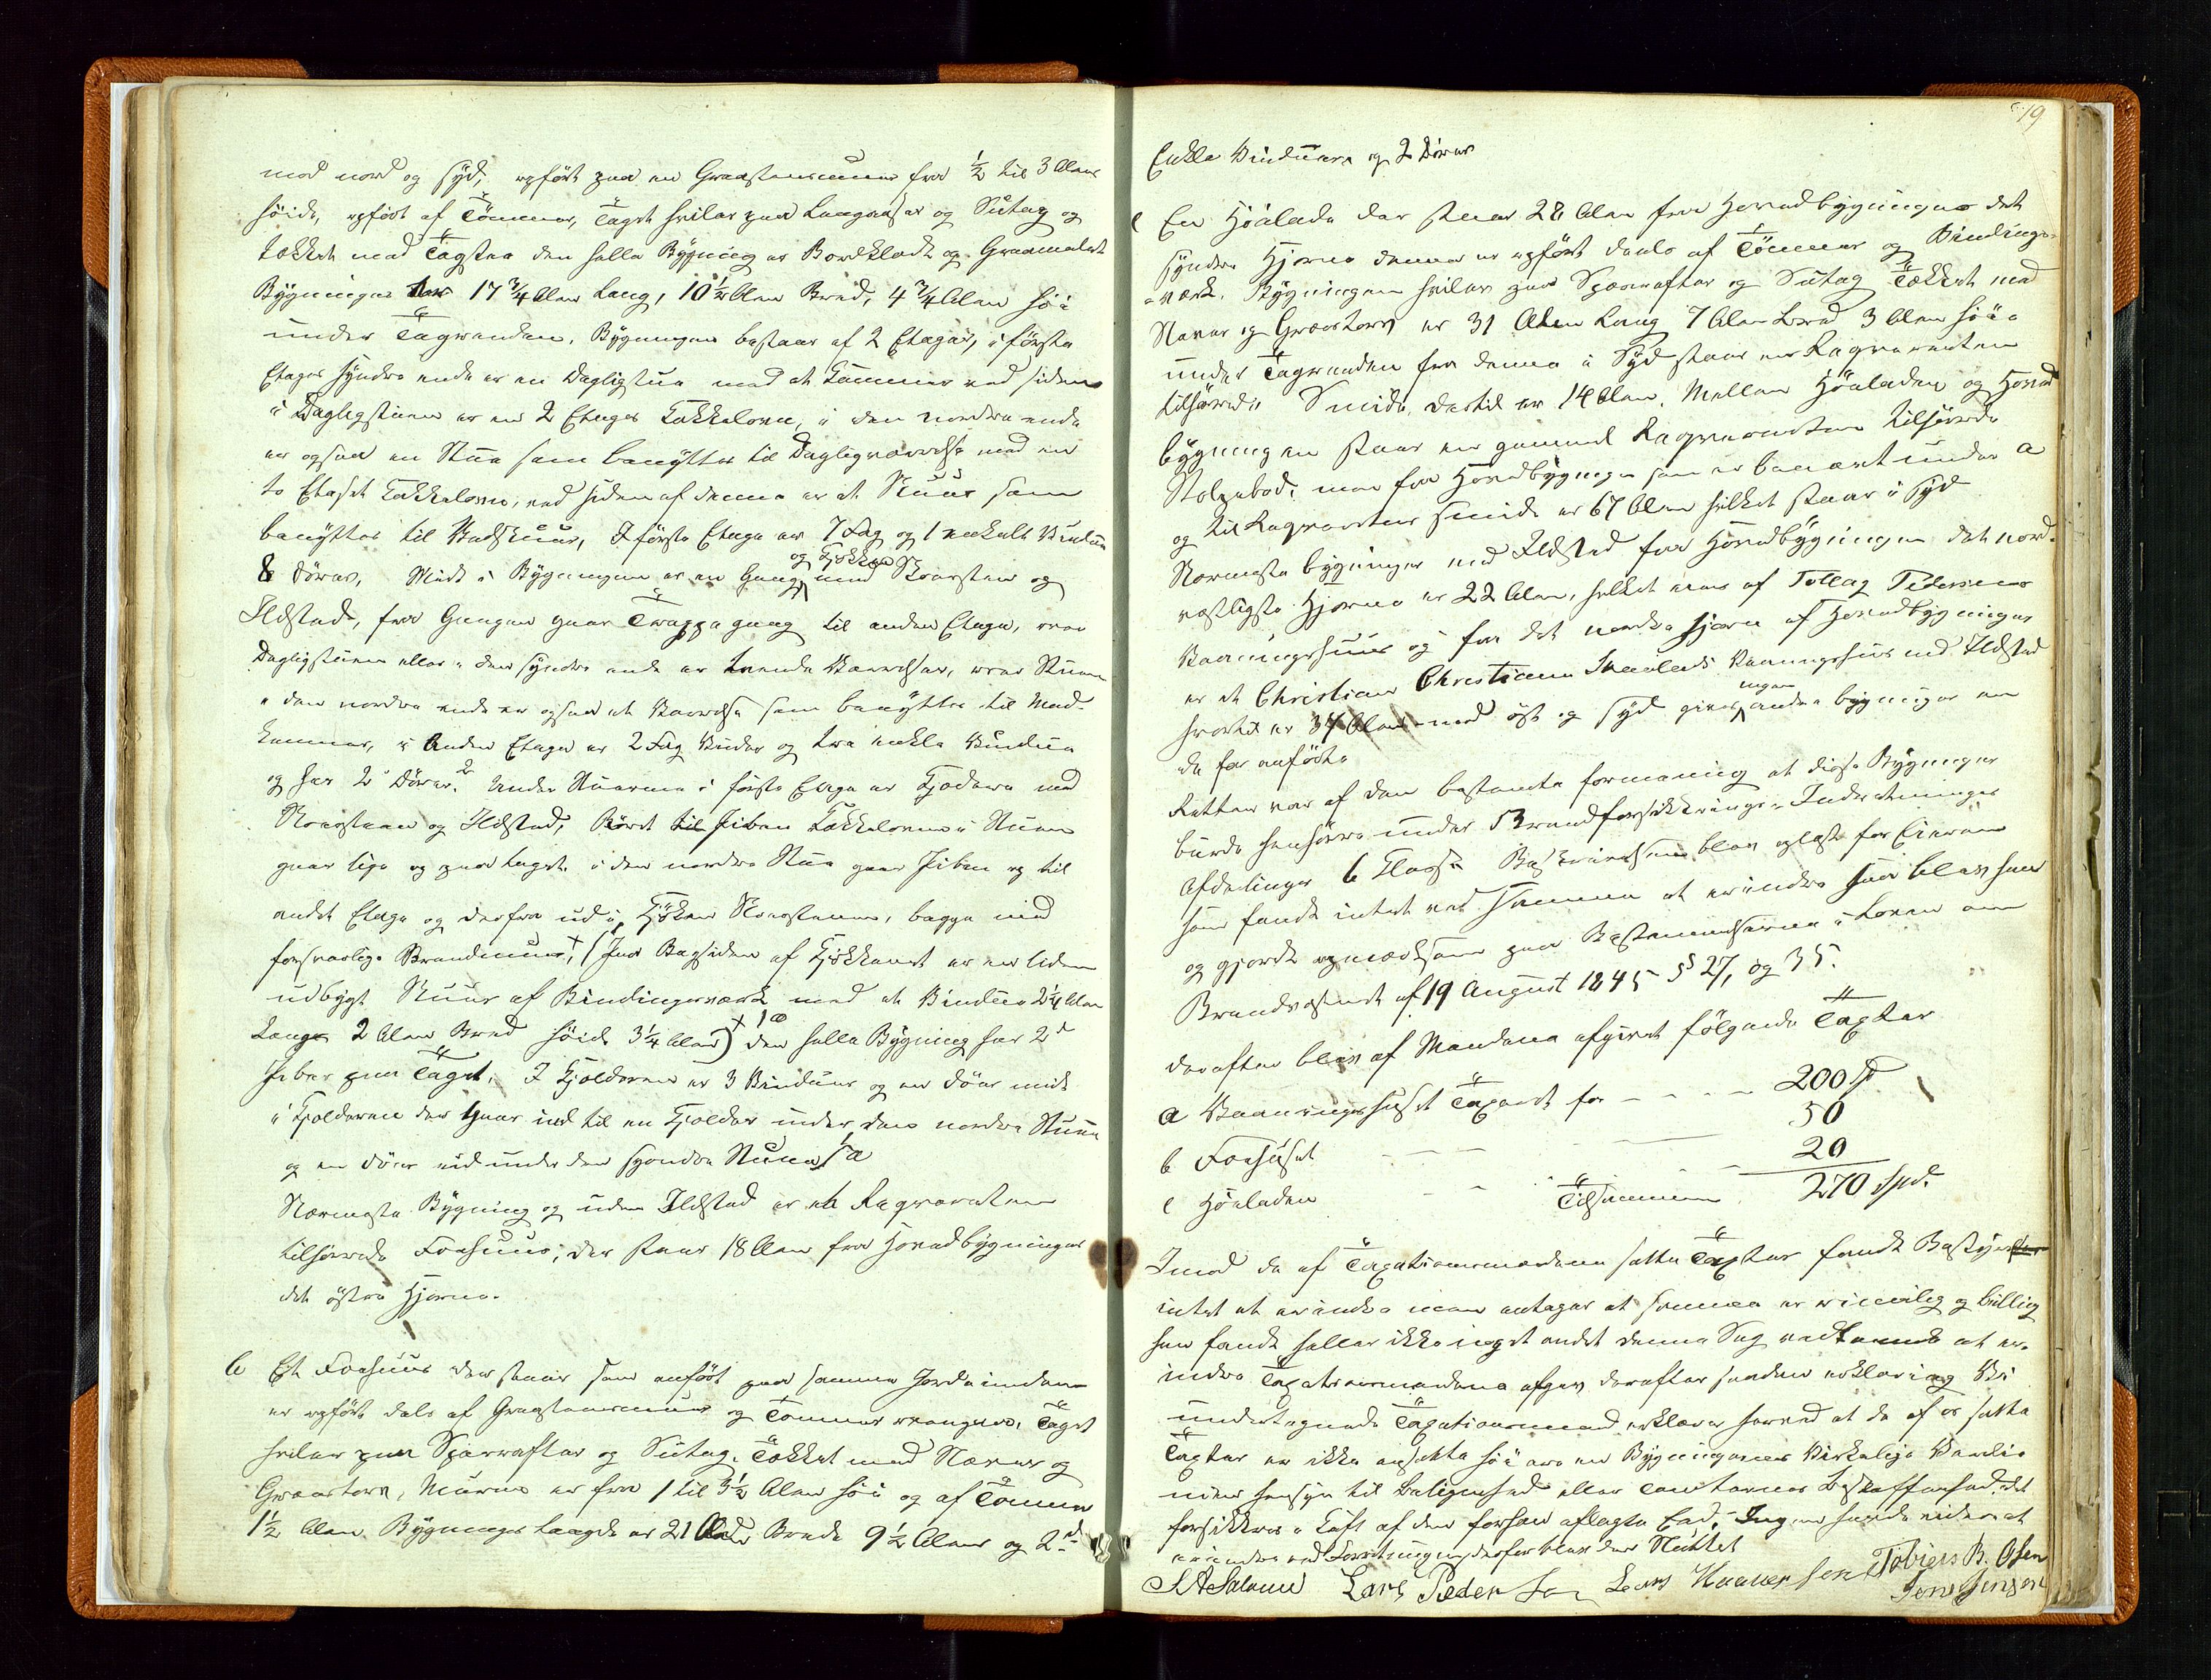 mod nord og syd, opført paa en Graastensmuur fra ½ til 3 Alens
høide, opført af Tømmer, Taget hviler paa Langaaser og Sutag og
tækket med Tagsten den hele Bygning er Bordklædt og Graamalet
Bygningen er 17 3/4 Alen Lang, 10 ½ Alen Bred, 4 3/4 Alen høi
under Tagranden. Bygningen bestaar af 2 Etager, i første
Etages syndre ende er en Dagligstue med et Kammer ved siden
i Dagligstuen er en 2 Etages Kakkelovn, i den nordre ende
er ogsaa en Stue som benyttes til Dagligværelse med en
to Etages Kakkelovn, ved siden af denne er et Skuur som
benyttes til Vedskuur, I første Etage er 7 Fag og 1 enkelt Vindue
og Kjøkken
8 Dører, Midt i Bygningen er en Gang med Skorsten og
Ildsted, fra Gangen gaar Trappegang til anden Etage, over
Dagligstuen eller i den syndre ende er tvende Værelser, over Stuen
i den nordre ende er ogsaa et Værelse som benyttes til Mad-
kammer, i Anden Etage er 2 Fag Vinduer og tre enkle Vindue
og har 2 Dører. Under Stuerne i første Etage er Kjelder med
Skorsteen og Ildsted, Røret til Piben Kakkelovnen i Stuen
gaar lige op paa taget. i den nordre Stue gaar Piben op til
andet Etage og derfra ud i Kjøkken Skorstenen, begge med
forsvarlige Brandmuur, + (Paa Bagsiden af Kjøkkenet er en liden
udbygt Skuur af Bindingsværk med et Vindue 2¼ Alen
Lang 2 Alen Bred høide 3¼ Alen) den hele Bygning har 2d
Piber paa Taget. I Kjelderen er 3 Vinduer og en Dør midt
i Kjelderen der gaar ind til en Kjelder under den nordre Stue
og en Dør ind under den syndre Stue a
Nærmeste Bygning og uden Ildsted er et Ragnvaldsen
tilhørende Føehuus, der staar 18 Alen fra Hovedbygningens
det østre Hjørne.
b Et Føehuus der staar som anført paa samme Jordeiendom
er opført dels af Graastensmuur og Tømmer, Taget
hviler paa Sperrafter og Sutag. Tækket med Næver og
Græstorv, Muren er fra 1 til 3½ Alen høi og af Tømmer
1½ Alen Bygningens Længde er 21 Alen, Brede 9½ Alen og 2d
19
Enkle Vinduer og 2 Dører
c En Høelade der staar 28 Alen fra Hovedbygningens det
syndre Hjørne denne er opført deels af Tømmer og Bindings-
værk. Bygningen hviler paa Sperrafter og Sutag Tækket med
Næver og Græstorv er 31 Alen Lang 7 Alen bred 3 Alen høi
under Tagranden fra denne i Syd staar en Ragnvaldsen
tilhørende Smide, dertil er 14 Alen. Mellem Høeladen og Hoved
bygningen staar en gammel Ragnvaldsen tilhørende
Stolpebod. men fra Hovedbygningen som er benævnt under a
og til Ragnvaldsens Smide er 67 Alen hvilket staar i Syd
Nærmeste bygninger med Ildsted fra Hovedbygningen det nord-
vestligste Hjørne er 22 Alen, hvilket eies af Tollag Pedersens
Vaaningshuus og fra det nordre hjørne af Hovedbygningen
er et Christian Christiansen Vaaningshuus med Ildsted
ingen
hvortil er 34 Alen mod øst og syd gives andre bygninger en
de før anførte
Retten var af den bestemte formening at disse Bygninger
burde henføres under Brandforsikkrings-Indretningens
Afdelinger 6 Klasse Beskrivelsen blev oplæst for Eieren
som fandt intet ved samme at erindre han blev saa
og gjordt opmærksom paa Bestemmelserne i Loven om
Brandvæsenet af 19 August 1845 § 27, og 35.
derefter blev af Mændene afgivet følgende Taxter
a Vaaningshuset Taxeret for - - - - 200 Sp
b Føehuset - - - 50
c Høeladen - - 20
Tilsammen 270 Spd.
Imod de af Taxationsmændene satte Taxter fandt Bestyrer
intet at erindre men antager at samme er rimelig og billig
han fandt heller ikke noget andet denne Sag vedkommende at er-
indre Taxationsmændene afgav derefter saadan erklæring Vi
undertegnede Taxationsmænd erklærer herved at de af os satte
Taxter er ikke ansatte høiere en Bygningernes Virkelige Værdie
uden hensyn til Beliggenhed eller Tomternes Beskaffenhed det
forsikkres i Kraft af den forhen aflagte Eed. Ingen havde videre at
erindre ved Forretningen derfor blev den Sluttet
S A Salomi Lars Pedersen Lars Knudsen Tobias B. Olsen
Jens Jensen